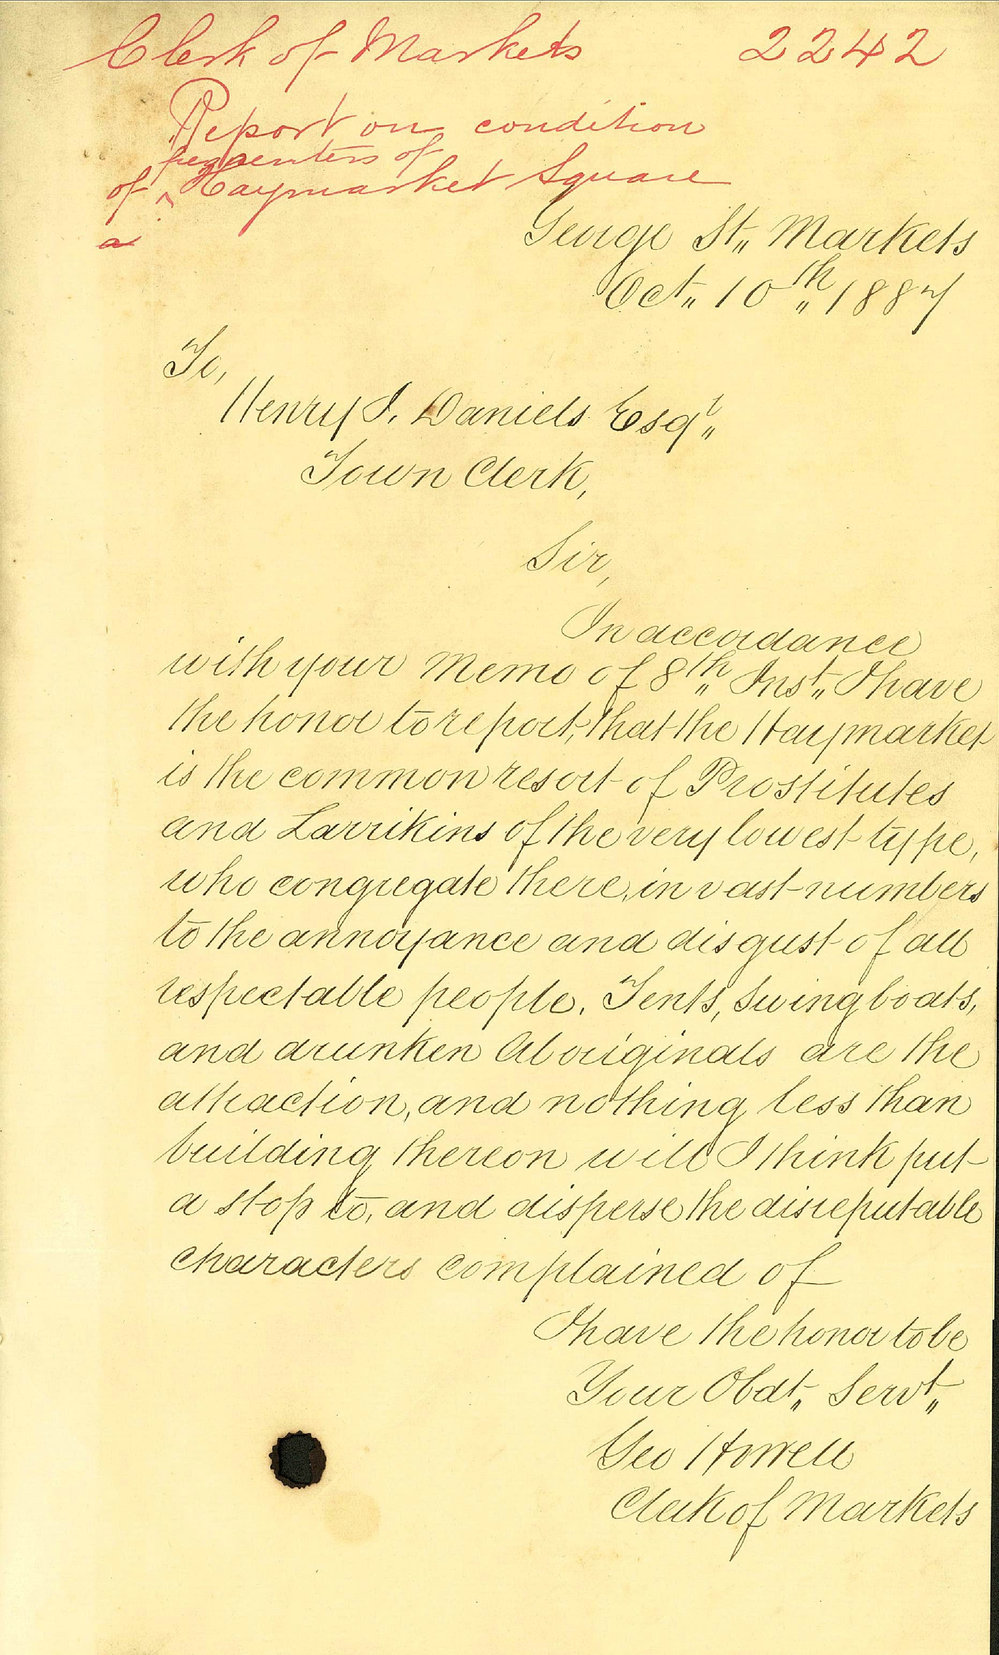 Clerk of Markets 2242
Report on condition
frequenters of
of ^ Haymarket Square
a
George St,, Markets
Oct,, 10th,, 1887
To,
Henry J. Daniels Esqr,,
Town Clerk,
Sir,
In accordance
with your Memo of 8th,, Inst,, I have
the honor to report, that the Haymarket
is the common resort of Prostitutes
and Larrikins of the very lowest type,
who congregate there, in vast numbers
to the annoyance and disgust of all
respectable people. Tents, Swingboats,
and drunken Aboriginals are the
attraction, and nothing less than
building thereon will I think put
a stop to, and disperse the disreputable
characters complained of
I have the honor to be
Your Obdt,, Servt,,
Geo Howell
Clerk of Markets